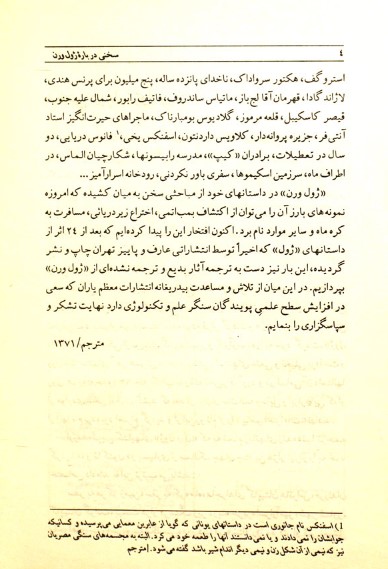 ۴
سخنی دربارهٔ ژول ورن
استروگف، هکتور سرواداک، ناخدای پانزده ساله، پنج میلیون برای پرنس هندی،
لاژاندگادا، قهرمان آقا لج‌باز، ماتیاس ساندروف، فاتیف رابور، شمال علیه جنوب،
قیصر کاسکیبل، قلعه مرموز، گلادیوس بومبارناک، ماجراهای حیرت‌انگیز استاد
آنتی‌فر، جزیره پروانه‌دار، کلاویس داردنتون، اسفنکس یخی،¹ فانوس دریایی، دو
سال در تعطیلات، برادران «کیپ»، مدرسه رابیسونها، شکارچیان الماس، در
اطراف ماه، سرزمین اسکیموها، سفری باور نکردنی، رودخانه اسرارآمیز...
«ژول ورن» در داستانهای خود از مباحثی سخن به میان کشیده که امروزه
نمونه‌های بارز آن را می‌توان از اکتشاف بمب‌اتمی، اختراع زیردریائی، مسافرت به
کره ماه و سایر موارد نام برد. اکنون افتخار این را پیدا کرده‌ایم که بعد از ۲۴ اثر از
داستانهای «ژول» که اخیراً توسط انتشاراتی عارف و پاییز تهران چاپ و نشر
گردیده، این بار نیز دست به ترجمه آثار بدیع و ترجمه نشده‌ای از «ژول ورن»
بپردازیم. در این میان از تلاش و مساعدت بیدریغانه انتشارات معظم یاران که سعی
در افزایش سطح علمی پویندگان سنگر علم و تکنولوژی دارد نهایت تشکر و
سپاسگزاری را بنمایم.
مترجم/۱۳۷۱
۱) اسفنکس نام جانوری است در داستانهای یونانی که گویا از عابرین معمایی می‌پرسیده و کسانیکه
جوابشان را نمی‌دادند و یا نمی‌دانستند آنها را طعمه خود می‌کرد. البته به مجسمه‌های سنگی مصریان
نیز که نیمی از آن شکل زن و نیمی دیگر اندام شیر باشد گفته می‌شود. /مترجم